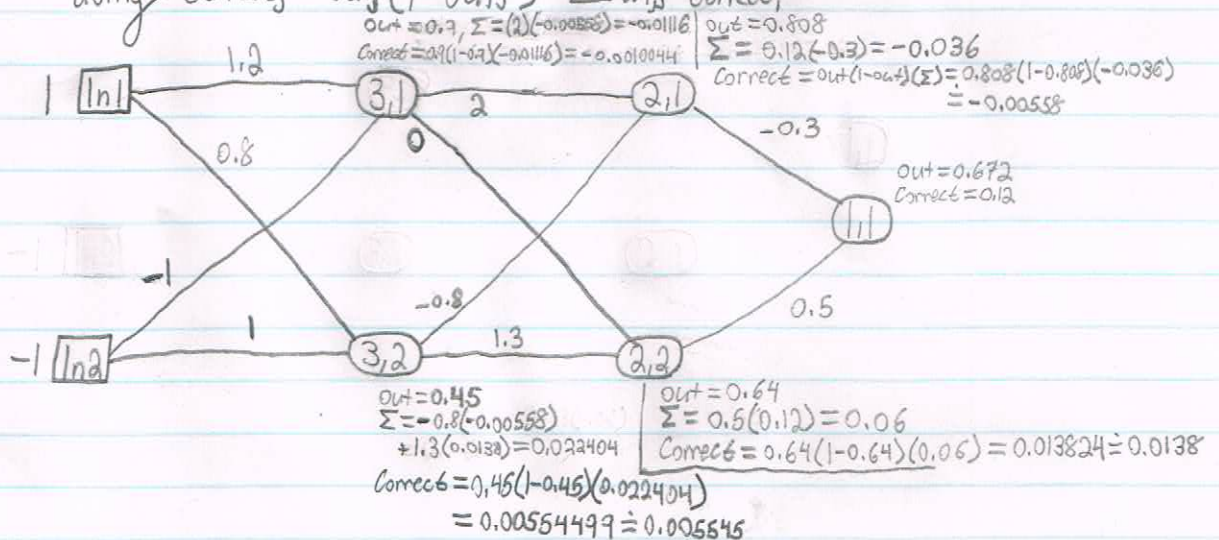 Out = 0.9, Σ = (2)(-0.00558) = -0.01116
Correct = 0.9(1-0.9)(-0.01116) = -0.0010044
out = 0.808
Σ = 0.12(-0.3) = -0.036
Correct = out(1-out)(Σ) = 0.808(1-0.808)(-0.036)
≐ -0.00558
1
In1
1.2
3,1
2
2,1
-0.3
0
0.8
Out = 0.672
Correct = 0.12
1,1
-1
-0.8
0.5
-1
In2
1
3,2
1.3
2,2
out = 0.45
Σ = -0.8(-0.00558)
+1.3(0.0138) = 0.022404
Correct = 0.45(1-0.45)(0.022404)
= 0.00554499 ≐ 0.005545
out = 0.64
Σ = 0.5(0.12) = 0.06
Correct = 0.64(1-0.64)(0.06) = 0.013824 ≐ 0.0138